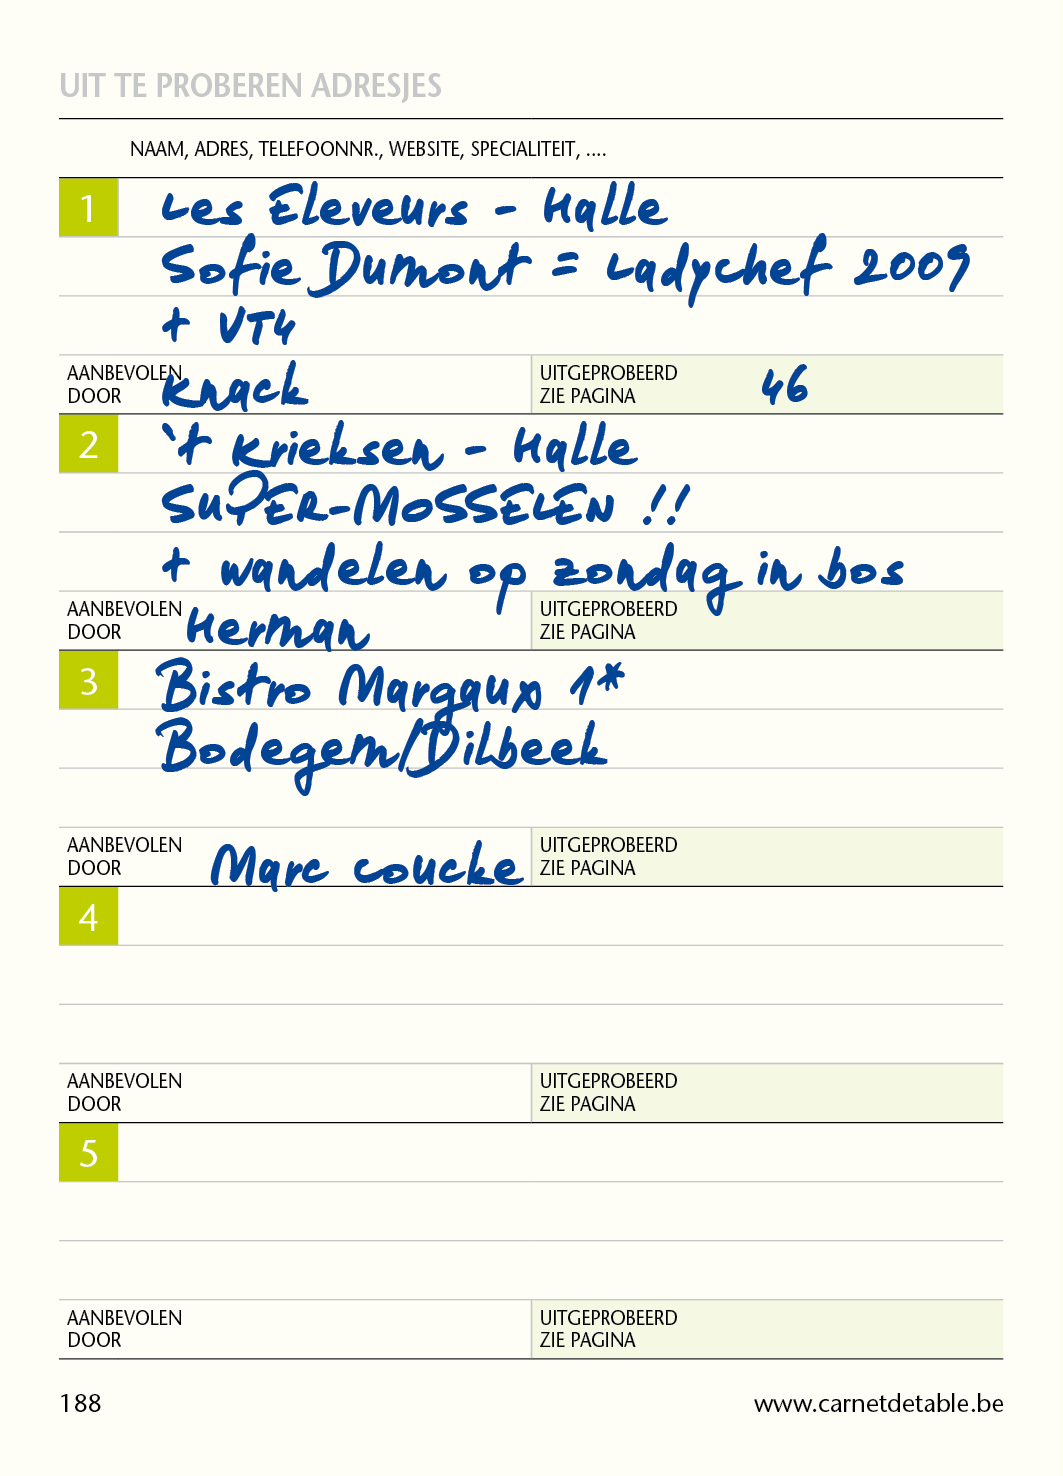 UIT TE PROBEREN ADRESJES
NAAM, ADRES, TELEFOONNR., WEBSITE, SPECIALITEIT, ....
1 Les Eleveurs - Halle
Sofie Dumont = Ladychef 2009
+ VT4
AANBEVOLEN DOOR Knack UITGEPROBEERD ZIE PAGINA 46
2 't Krieksen - Halle
SUPER-MOSSELEN !!
+ wandelen op zondag in bos
AANBEVOLEN DOOR Herman UITGEPROBEERD ZIE PAGINA
3 Bistro Margaux 1*
Bodegem/Dilbeek
AANBEVOLEN DOOR Marc Coucke UITGEPROBEERD ZIE PAGINA
4
AANBEVOLEN DOOR UITGEPROBEERD ZIE PAGINA
5
AANBEVOLEN DOOR UITGEPROBEERD ZIE PAGINA
188 www.carnetdetable.be